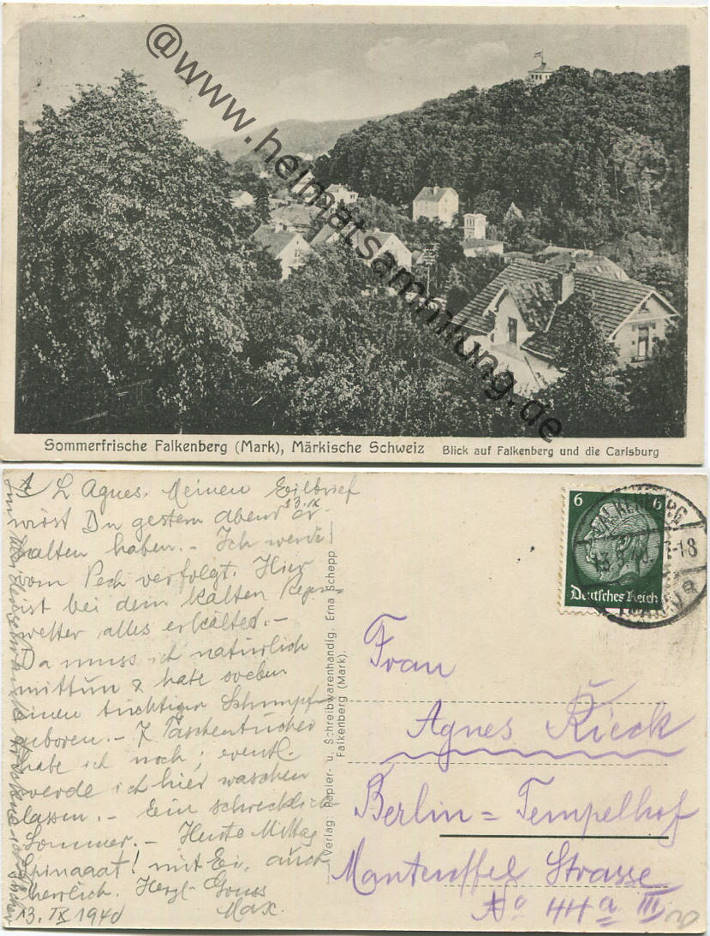 @www.heimatsammlung.de
Sommerfrische Falkenberg (Mark), Märkische Schweiz Blick auf Falkenberg und die Carlsburg
L Agnes. Meinen Eilbrief
wirst Du gestern abend er-
halten haben.- Ich werde
vom Pech verfolgt. Hier
ist bei dem kalten Regen-
wetter alles erkältet.-
Da muss ich natürlich
mittun & habe soeben
einen tüchtigen Schnupfen
geboren.- 7 Taschentücher
habe ich noch; eventl
werde ich hier waschen
lassen.- Ein schrecklich
Sommer.- Heute Mittag
Spinaaat! mit Ei, auch
herrlich. Herzl Gruss
Max.
13. IX 1940
Verlag Papier- u. Schreibwarenhandlg. Erna Schepp
Falkenberg (Mark).
6 6
Deutsches Reich
FALKENBERG
-18
Frau
Agnes Rieck
Berlin = Tempelhof
Manteuffel Strasse
No 44a III